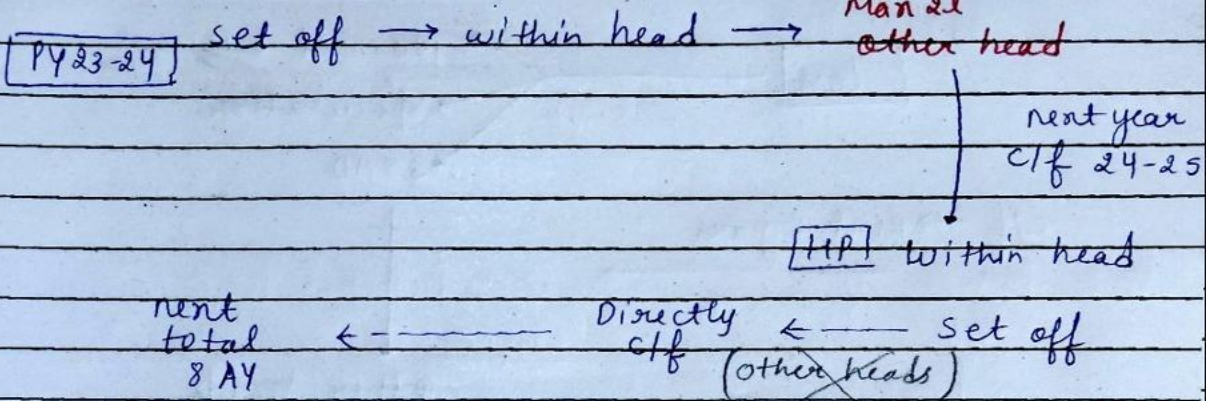 Max 2l
PY 23-24 set off → within head → other head
next year
c/f 24-25
HP within head
next total 8 AY ← Directly c/f ← set off
(other heads)